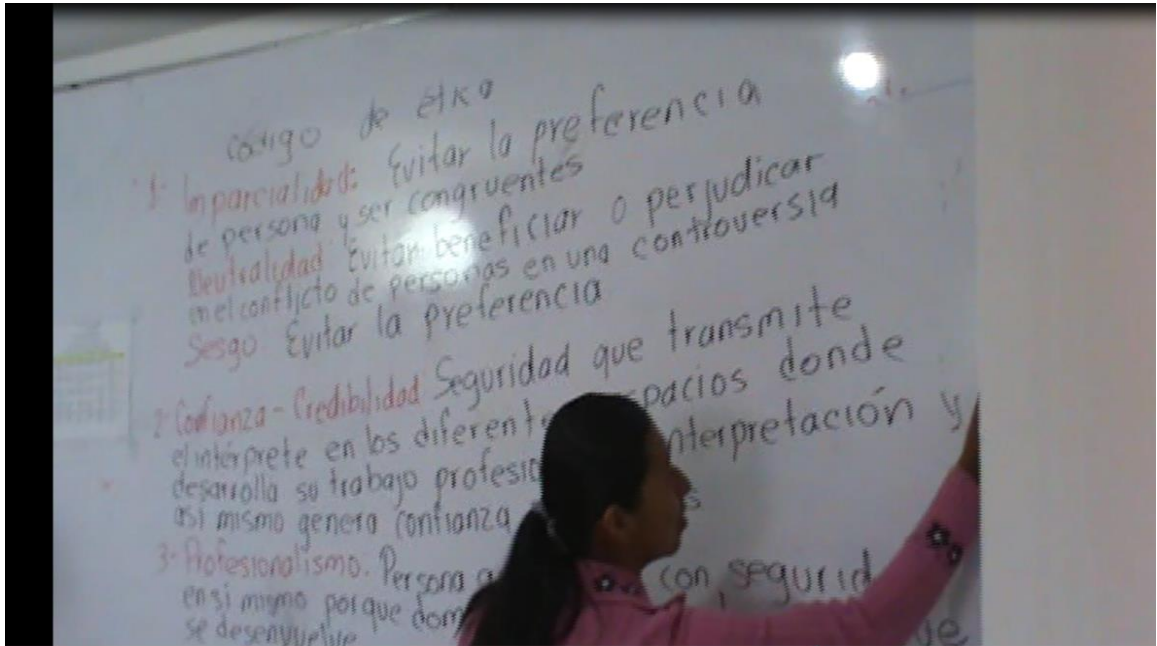 código de ética
1- Imparcialidad: Evitar la preferencia
de persona y ser congruentes
Neutralidad Evitar beneficiar o perjudicar
en el conflicto de personas en una controversia
Sesgo Evitar la preferencia
2- Confianza - Credibilidad Seguridad que transmite
el intérprete en los diferent spacios donde
desarrolla su trabajo profesio nterpretación y
asi mismo genera confianza s
3- Profesionalismo. Persona con segurid
en si mismo porque dom
se desenvuelve ue